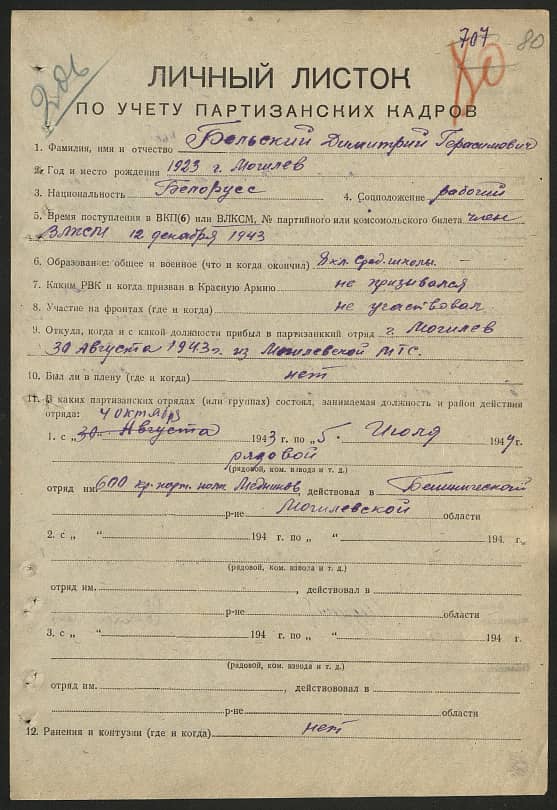 707
80
80
206
ЛИЧНЫЙ ЛИСТОК
ПО УЧЕТУ ПАРТИЗАНСКИХ КАДРОВ
1. Фамилия, имя и отчество Бельский Димитрий Герасимович
2. Год и место рождения 1923 г. Могилев
3. Национальность Белорусс 4. Соцположение рабочий
5. Время поступления в ВКП(б) или ВЛКСМ, № партийного или комсомольского билета член
ВЛКСМ 12 декабря 1943
6. Образование: общее и военное (что и когда окончил) кл. Сред. школы.
7. Каким РВК и когда призван в Красную Армию не призывался
8. Участие на фронтах (где и когда) не участвовал
9. Откуда, когда и с какой должности прибыл в партизанккий отряд г. Могилев
30 Августа 1943 г. из Могилевской МТС.
10. Был ли в плену (где и когда) нет
11. В каких партизанских отрядах (или группах) состоял, занимаемая должность и район действия
отряда: 4 октября
1. с „30“ Августа 1943 г. по „5. Июля 1944 г.
рядовой
(рядовой, ком. взвода и т. д.)
отряд им. 600 действовал в
р-не Могилевской области
2. с „ “ 194 г. по „ “ 194 г.
(рядовой, ком. взвода и т. д.)
отряд им. , действовал в
р-не области
3. с „ “ 194 г. по „ “ 194 г.
(рядовой, ком. взвода и т. д.)
отряд им. , действовал в
р-не области
12. Ранения и контузии (где и когда) нет